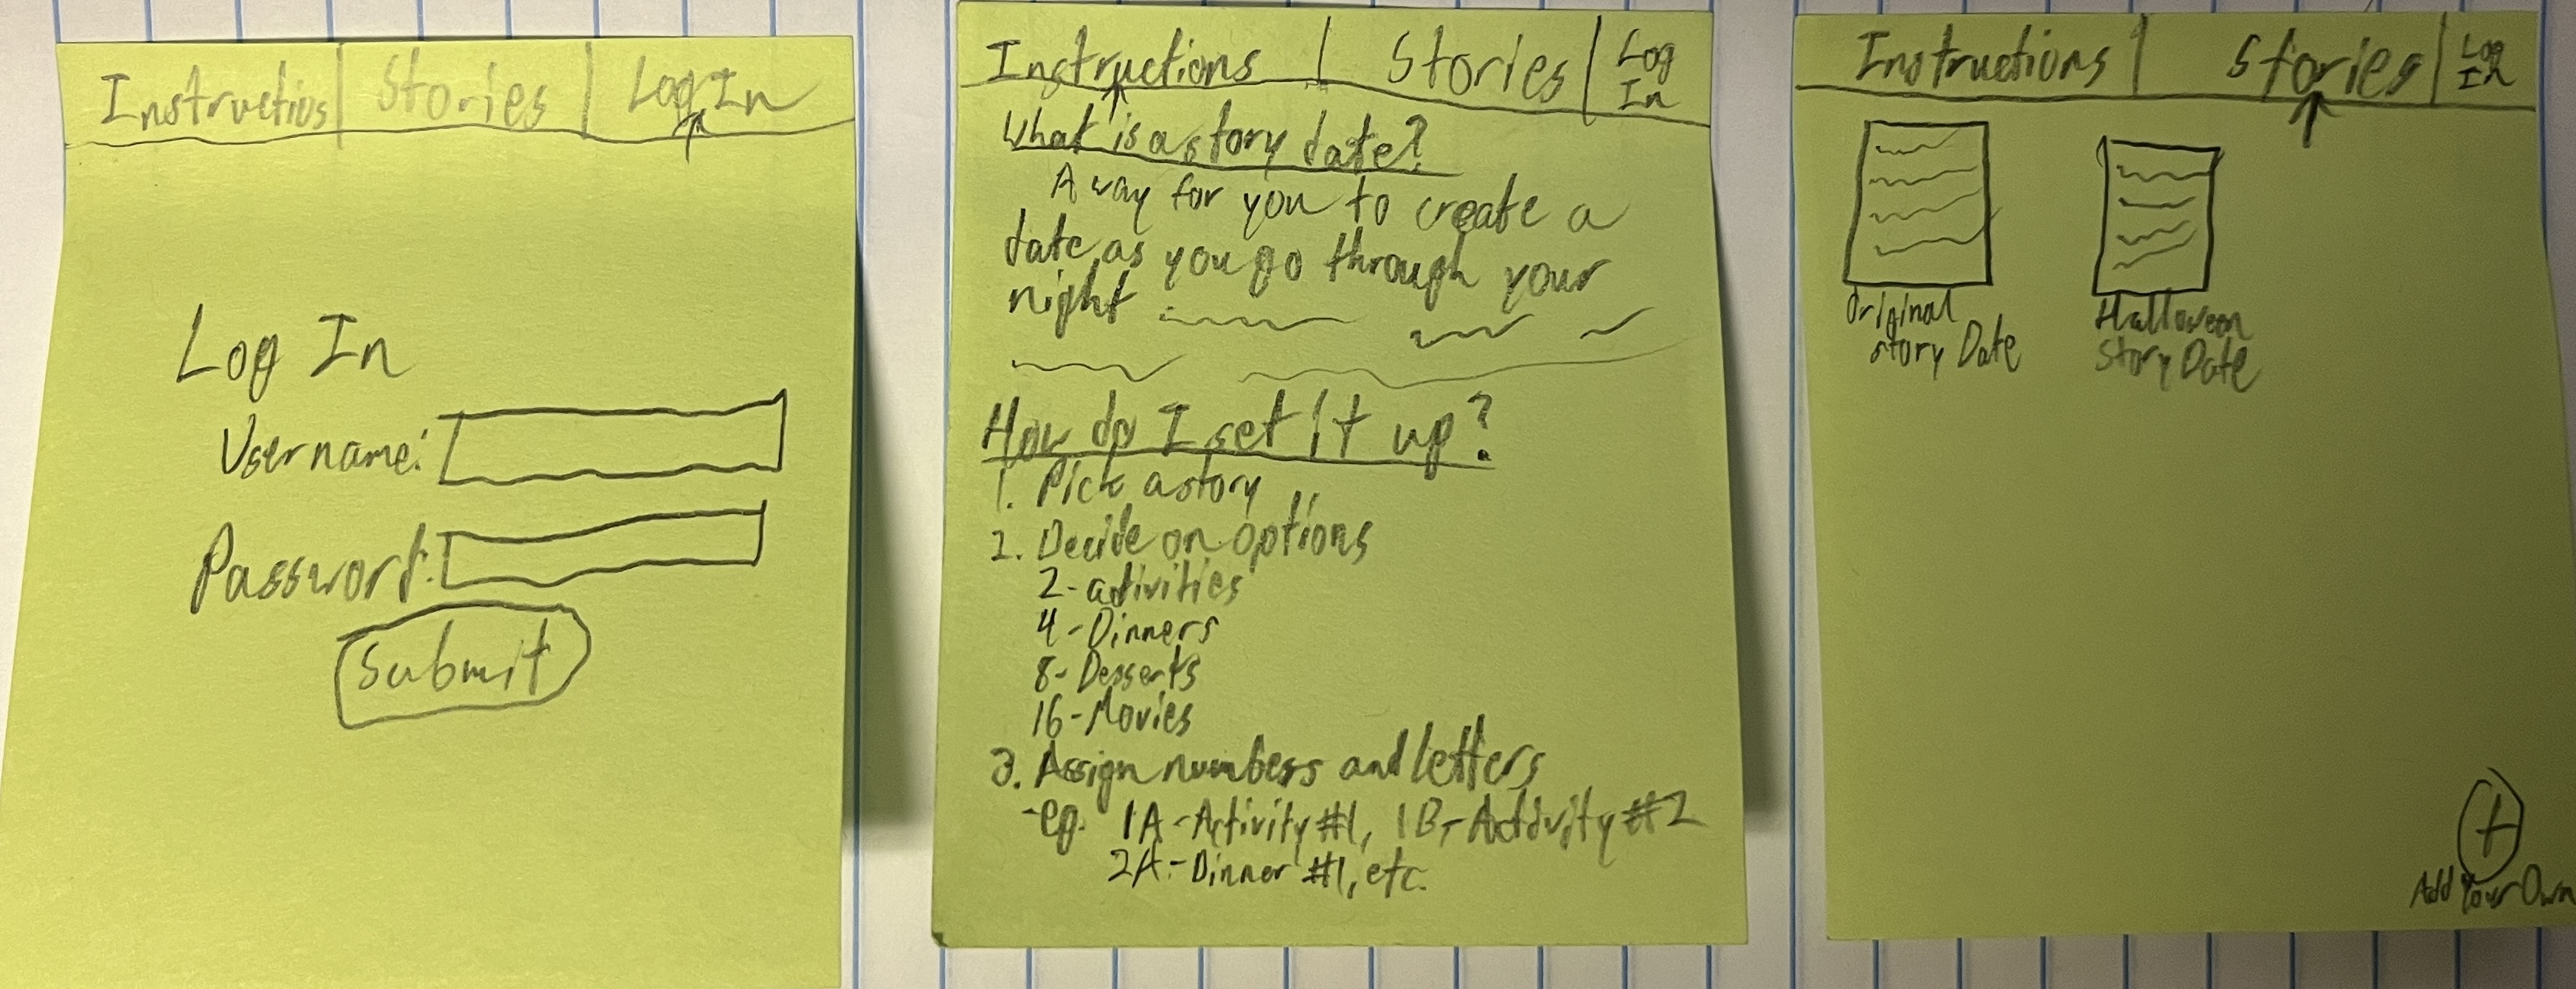 Instructios | Stories | Log In
Log In
Username:
Password:
Submit
Instructions | Stories | Log In
What is a story date?
A way for you to create a
date as you go through your
night
How do I set it up?
1. Pick a story
2. Decide on options
2-activities
4-Dinners
8-Desserts
16-Movies
3. Assign numbers and letters
-eg. 1A-Activity #1, 1B-Activity #2
2A-Dinner #1, etc.
Instructions | Stories | Log In
Original
Story Date
Halloween
Story Date
+
Add Your Own